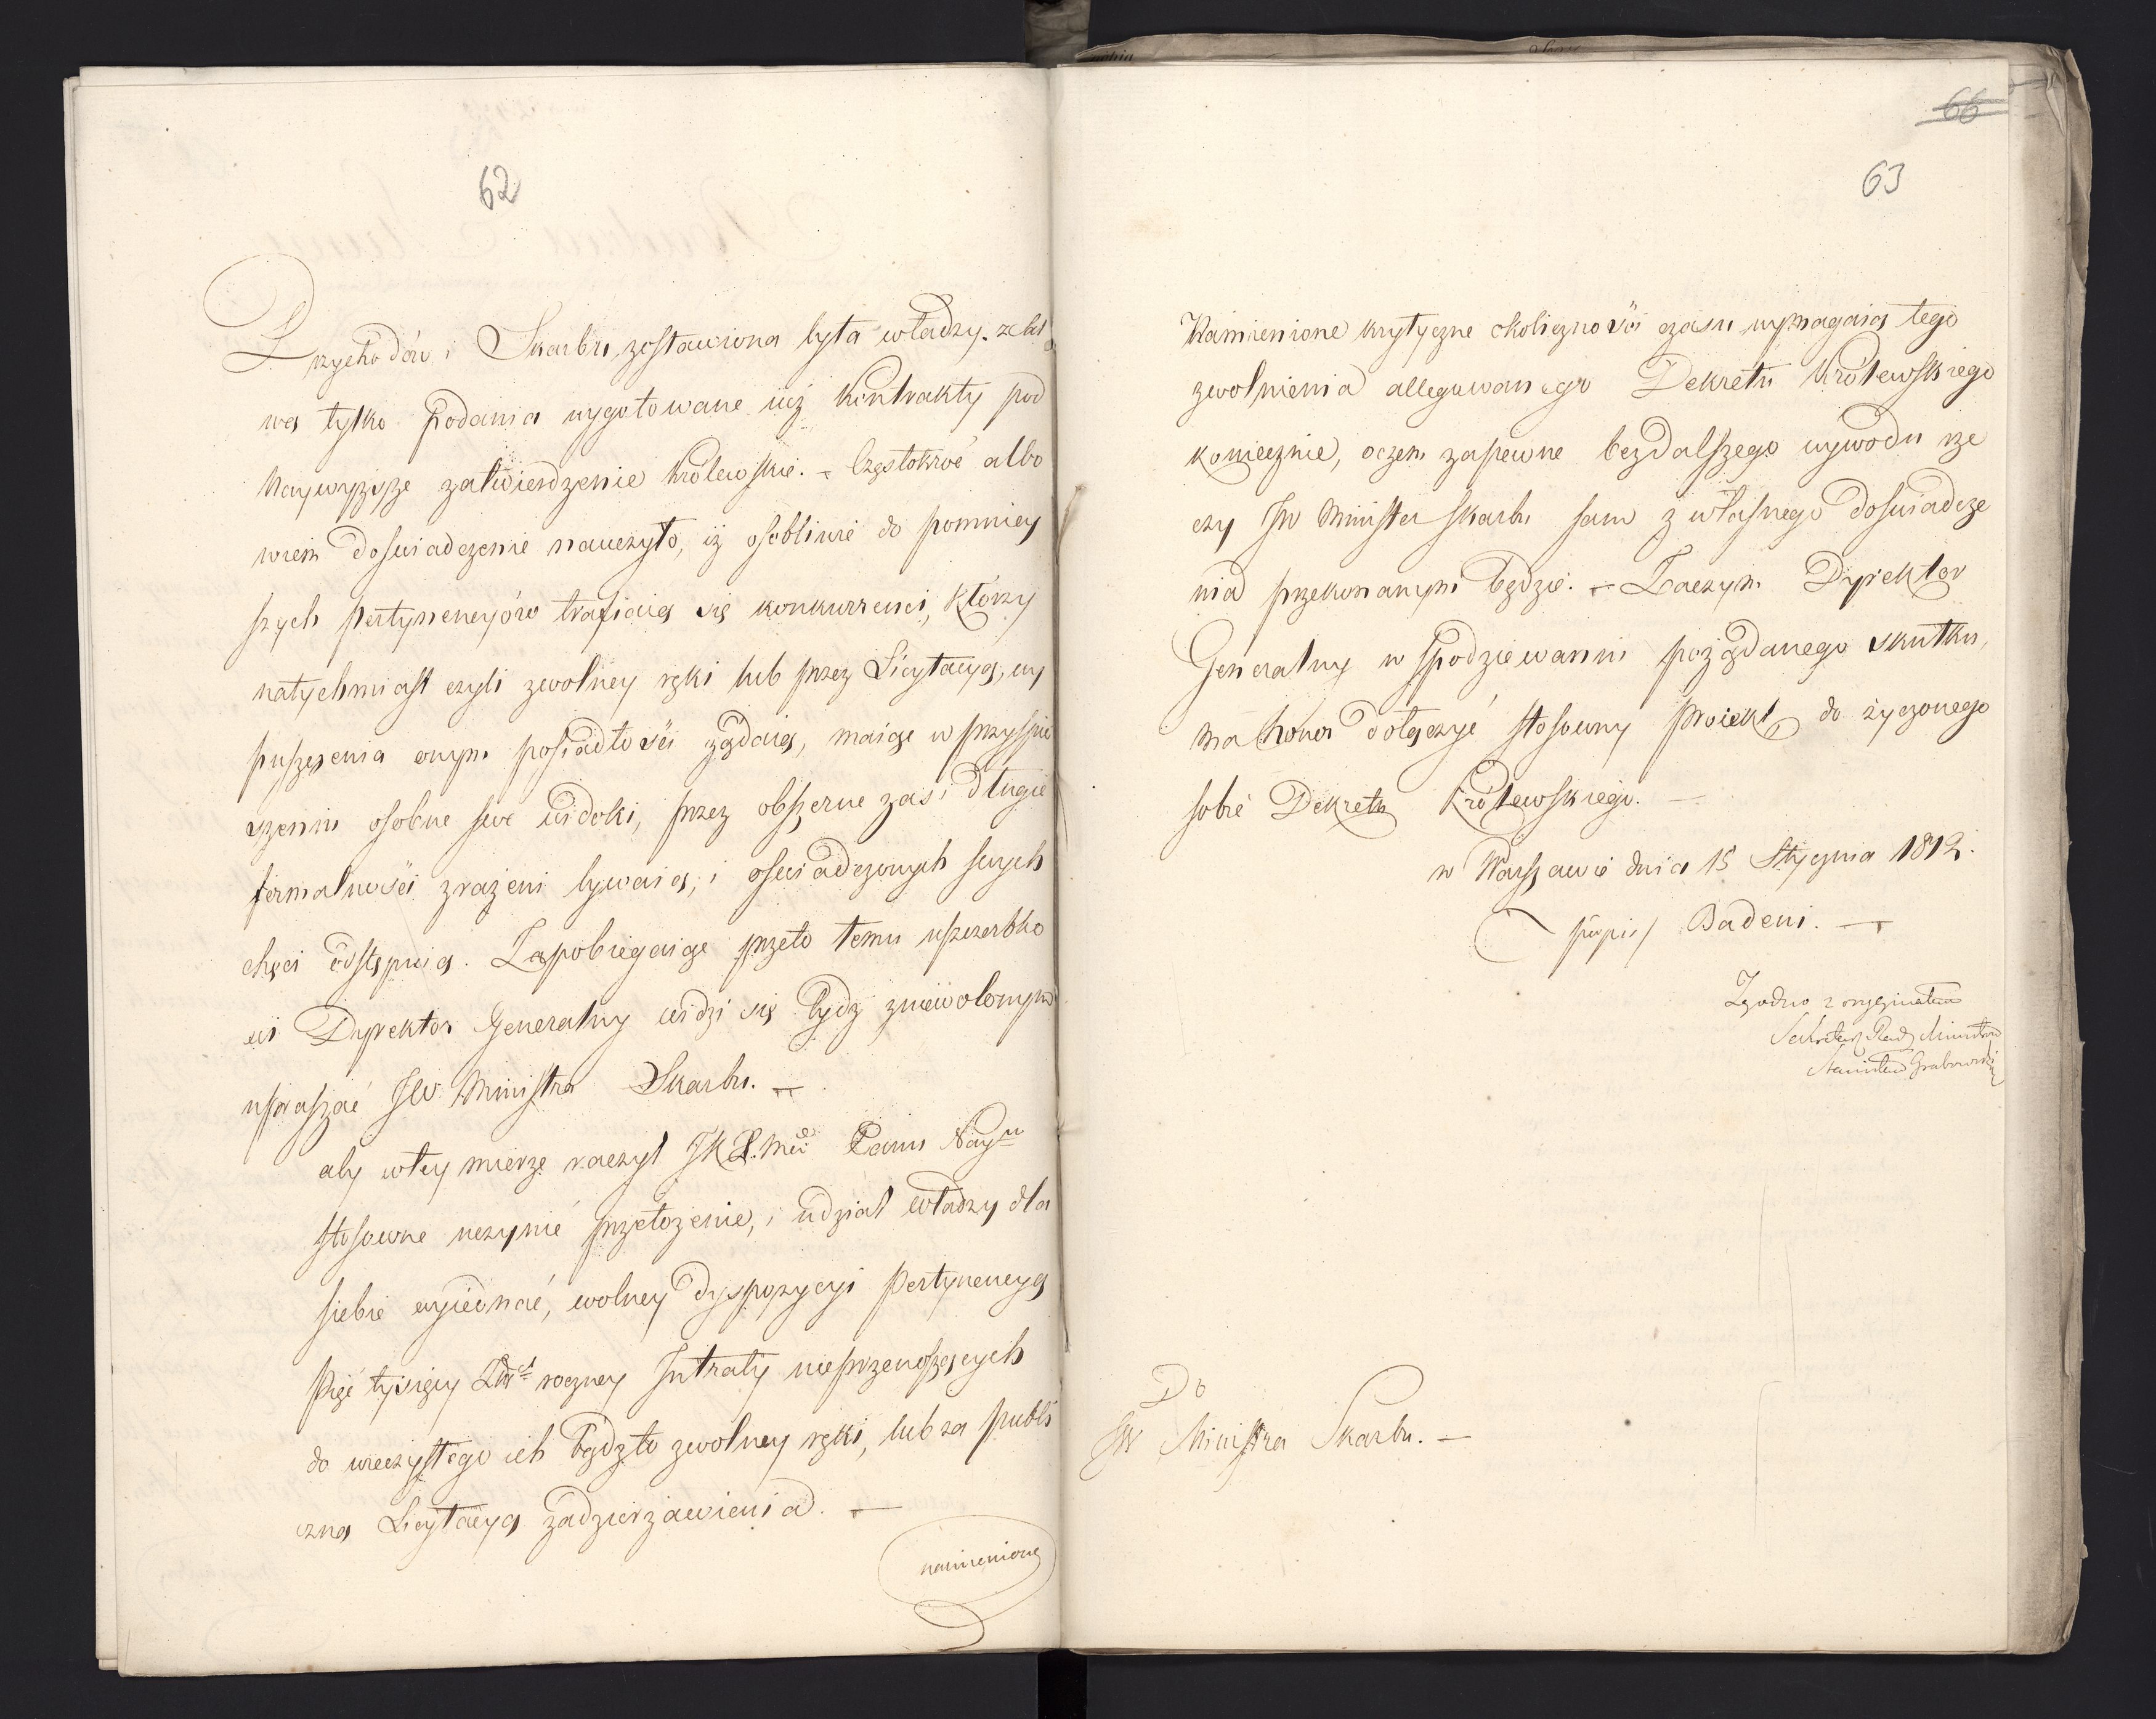 62
Przychodów i Skarbu, zostawiona była władzy,
wa tylko podania wygotowane iuż Kontrakty pod
Naywyższe zatwierdzenie Królewskie. – Częstokroć albo
wiem doświadczenie nauczyło, iż osobliwie do pomniey
szych pertynencyów trafiaią się konkurrenci, którzy
natychmiast czyli zwolney ręki lub przez Licytacyą, wy
puszczenia onym posiadłości żądaią, maiąc w przyspie
szeniu osobne swe widoki, przez obszerne zaś i długie
formalności zrażeni bywaią, i oświadczonych swych
chęci odstępuią. Zapobiegaiąc przeto temu uszczerbko
wi Dyrektor Generalny widzi się bydź zniewolonym
upraszać JW. Ministra Skarbu. –
aby wtey mierze raczył JKK. Mci Panu Nayu
stosowne uczynić przełożenie, i udział władzy dla
siebie wyiednać, wolney dyspozycyi pertynencyą
pięć tysięcy Złt roczney Intraty nieprzenoszących
do wieczystego ich bądźto zwolney ręki, lub za publi
czną Licytacyą zadzierżawienia. –
namienione
66
63
Namienione krytyczne okoliczności czasu wymagaią tego
zwolnienia allegowanego Dekretu Królewskiego
koniecznie, oczem zapewne bezdalszego wywodu rze
czy JW Minister Skarbu sam z własnego doświadcze
nia przekonanym będzie. – Zaczym Dyrektor
Generalny w spodziewaniu pożądanego skutku,
ma honor dołączyć stosowny proiekt do życzonego
sobie Dekretu Królewskiego. –
w Warszawie dnia 15 Stycznia 1812.
podpis/ Badeni. –
Zgodno z oryginałem
Sekretarz Rady Ministrów
Stanisław Grabowski
Do
JW Ministra Skarbu. –